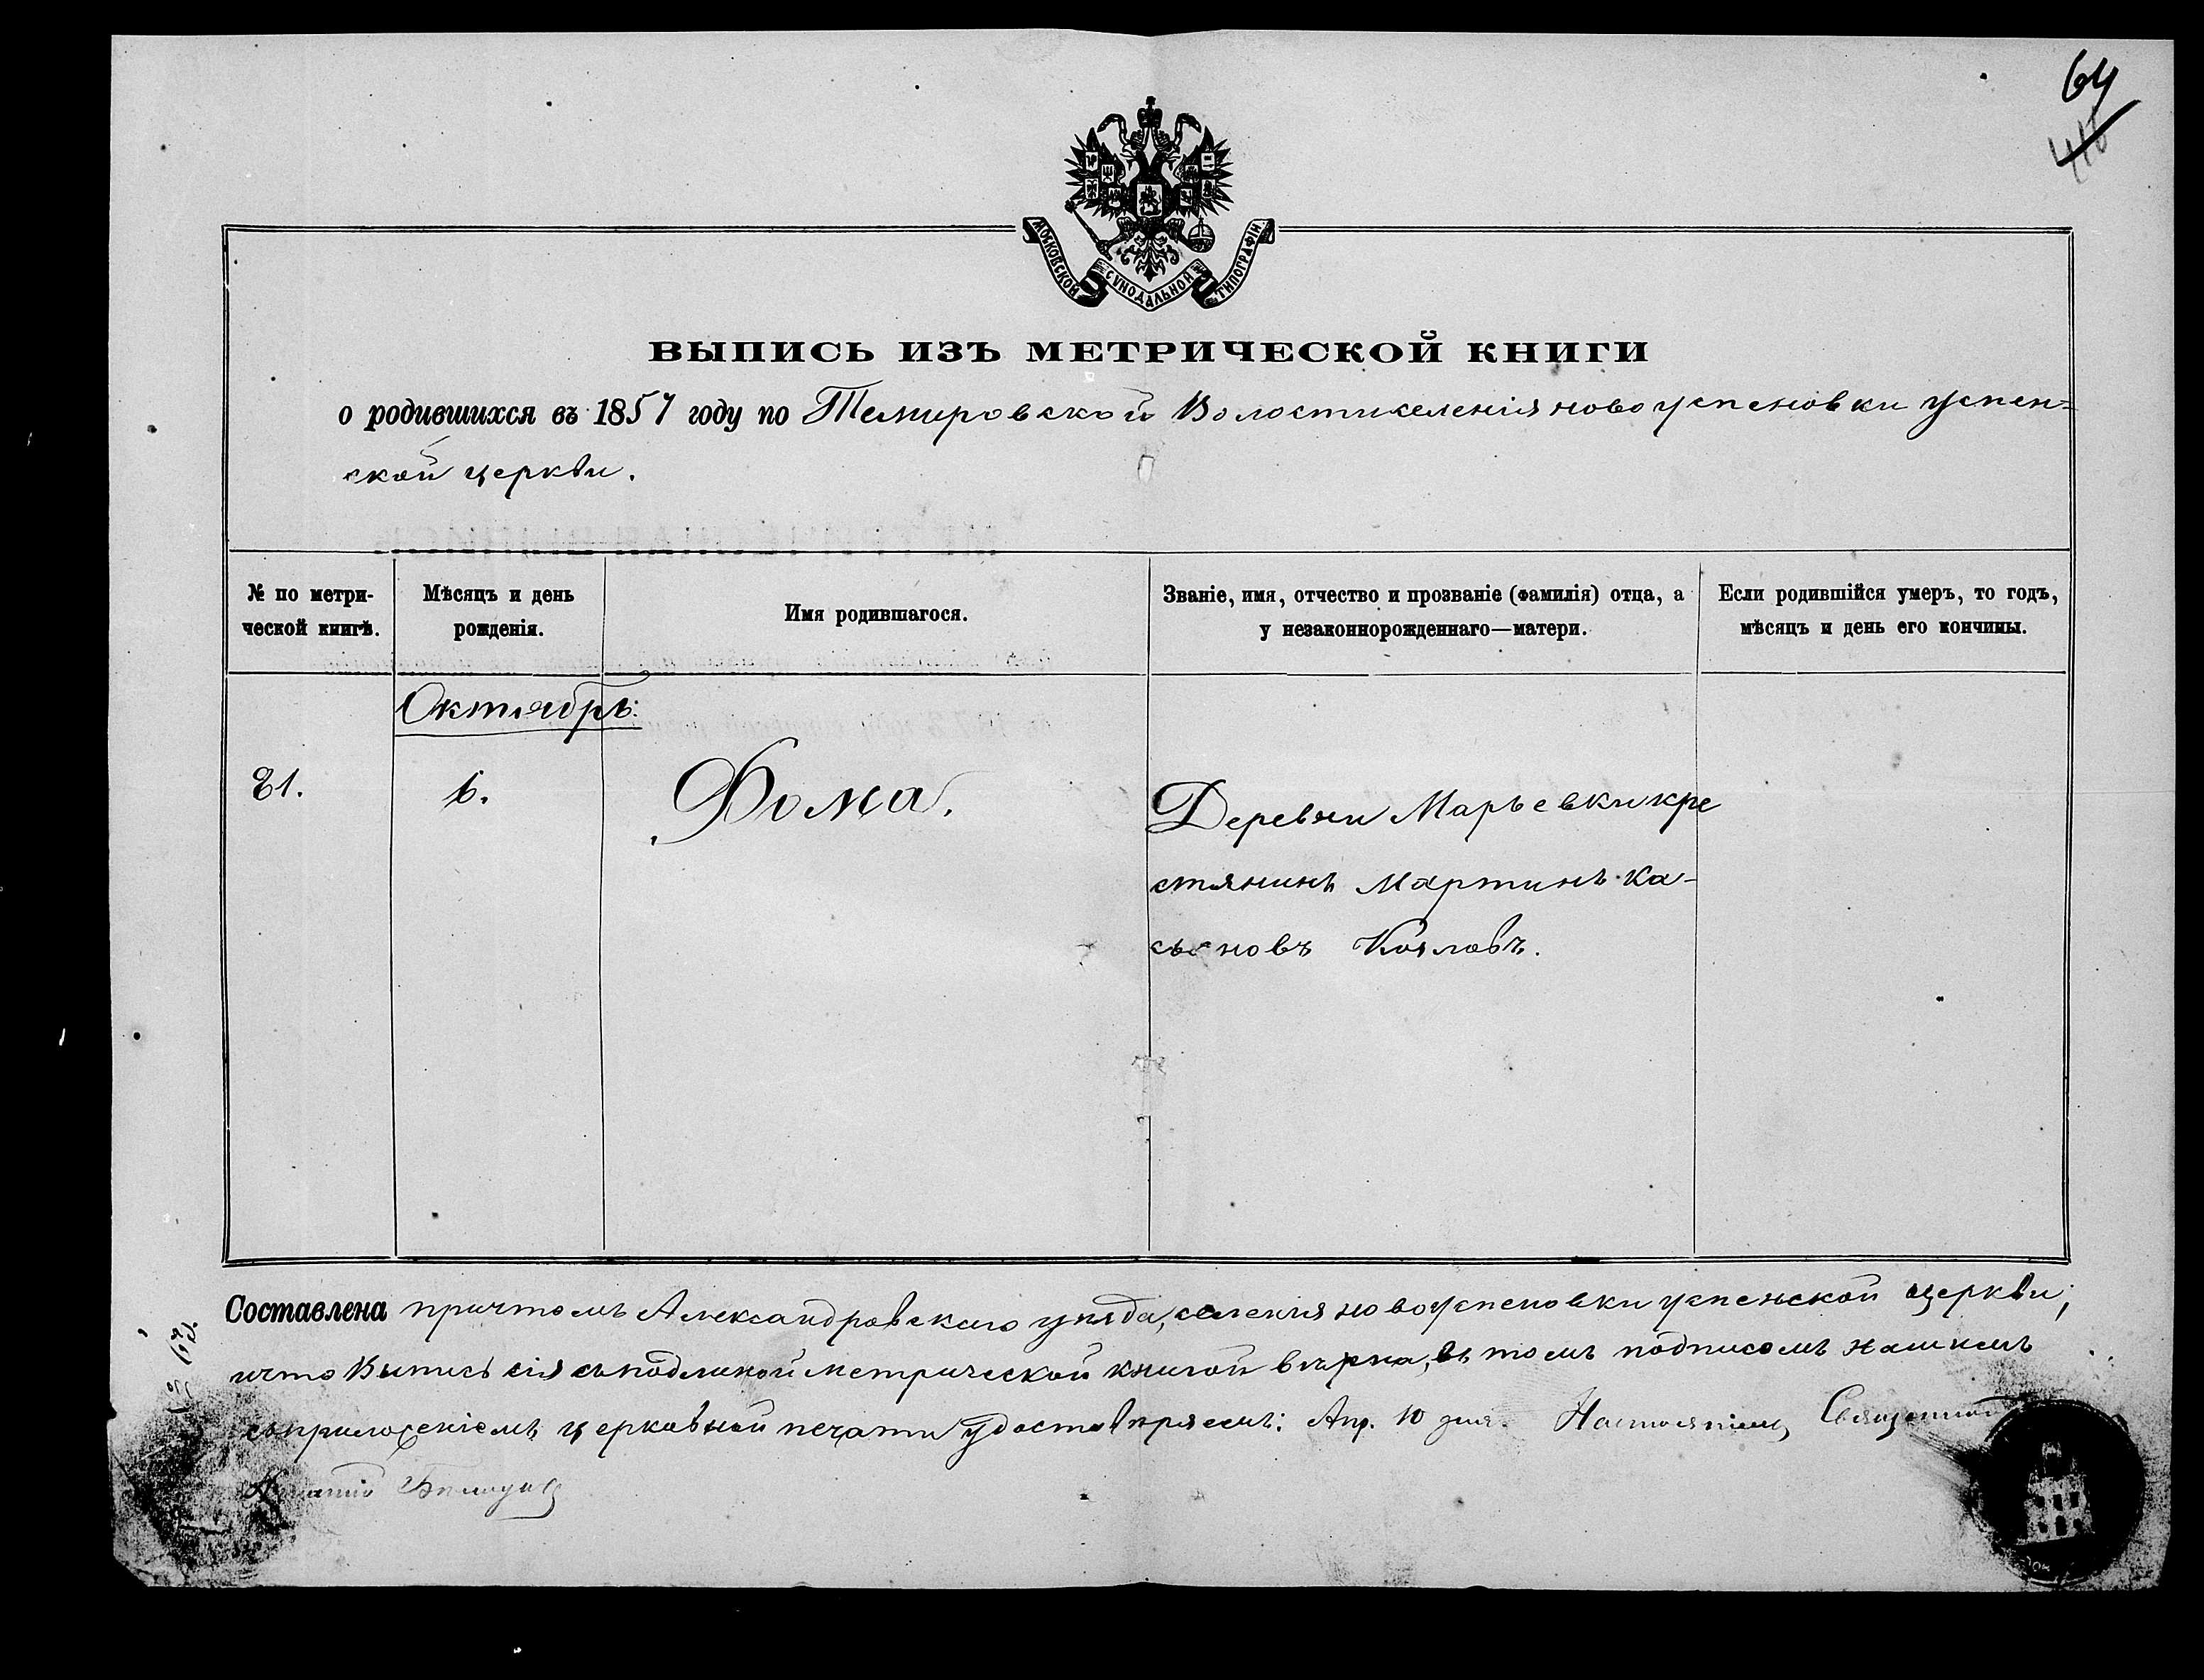 64
МОСКОВСКОЙ СѴНОДАЛЬНОЙ ТИПОГРАФІИ
ВЫПИСЬ ИЗЪ МЕТРИЧЕСКОЙ КНИГИ
о родившихся въ 1857 году по Темировской Волости селенія новоуспеновки успен=
ской церкви.
№ по метри-
ческой книгѣ.
Мѣсяцъ и день
рожденія.
Имя родившагося.
Званіе, имя, отчество и прозваніе (фамилія) отца, а
у незаконнорожденнаго—матери.
Если родившійся умеръ, то годъ,
мѣсяцъ и день его кончины.
Октябрь:
81.
6.
Фома.
Деревни Марьевки кре
стянинъ Мартинъ Ка-
сьяновъ Козловъ.
Составлена причтомъ Александровскаго уѣзда, селенія новоуспеновки успенской церкви;
и что Выпись сія съ подлиной метрической книгой вѣрна, въ томъ подписомъ нашимъ
съ приложеніемъ церковной печати удостовѣряемъ: Апр. 10 дня. Настоятель Священникъ